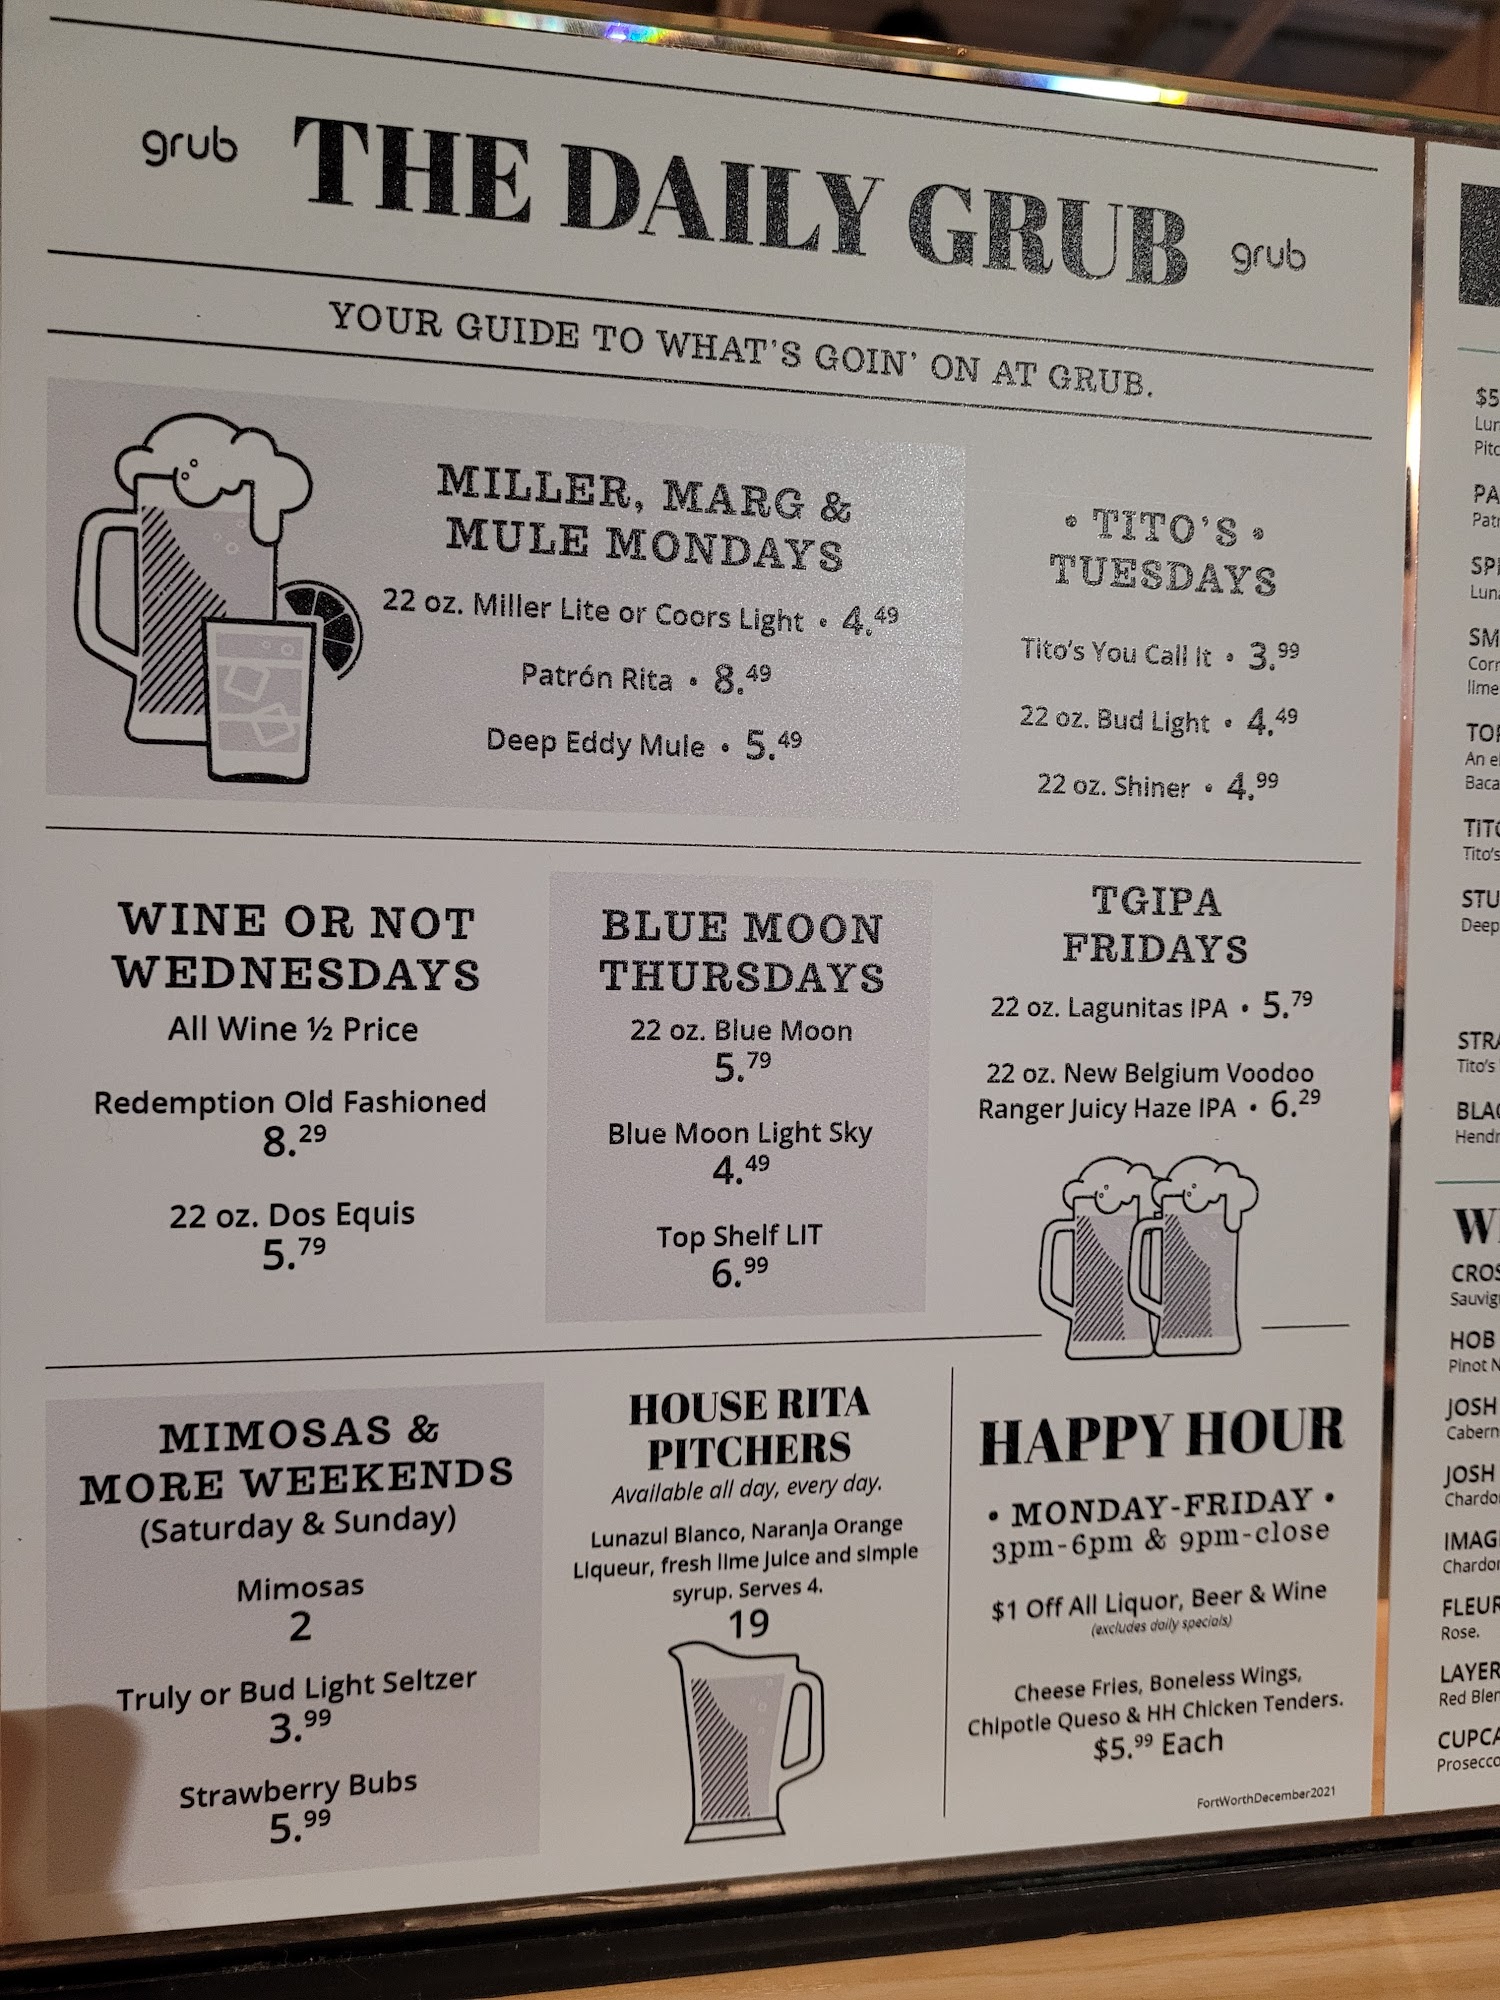 grub THE DAILY GRUB grub
YOUR GUIDE TO WHAT'S GOIN' ON AT GRUB.
MILLER, MARG &
MULE MONDAYS
22 oz. Miller Lite or Coors Light • 4.49
Patrón Rita • 8.49
Deep Eddy Mule • 5.49
• TITO'S •
TUESDAYS
Tito's You Call It • 3.99
22 oz. Bud Light • 4.49
22 oz. Shiner • 4.99
WINE OR NOT
WEDNESDAYS
All Wine ½ Price
Redemption Old Fashioned
8.29
22 oz. Dos Equis
5.79
BLUE MOON
THURSDAYS
22 oz. Blue Moon
5.79
Blue Moon Light Sky
4.49
Top Shelf LIT
6.99
TGIPA
FRIDAYS
22 oz. Lagunitas IPA • 5.79
22 oz. New Belgium Voodoo
Ranger Juicy Haze IPA • 6.29
MIMOSAS &
MORE WEEKENDS
(Saturday & Sunday)
Mimosas
2
Truly or Bud Light Seltzer
3.99
Strawberry Bubs
5.99
HOUSE RITA
PITCHERS
Available all day, every day.
Lunazul Blanco, NaranJa Orange
Liqueur, fresh lime juice and simple
syrup. Serves 4.
19
HAPPY HOUR
• MONDAY-FRIDAY •
3pm-6pm & 9pm-close
$1 Off All Liquor, Beer & Wine
(excludes daily specials)
Cheese Fries, Boneless Wings,
Chipotle Queso & HH Chicken Tenders.
$5.99 Each
FortWorthDecember2021
$5
lime
An
Tito's
Deep
Tito's
HOB
JOSH
JOSH
Rose.
Red
Prosecco